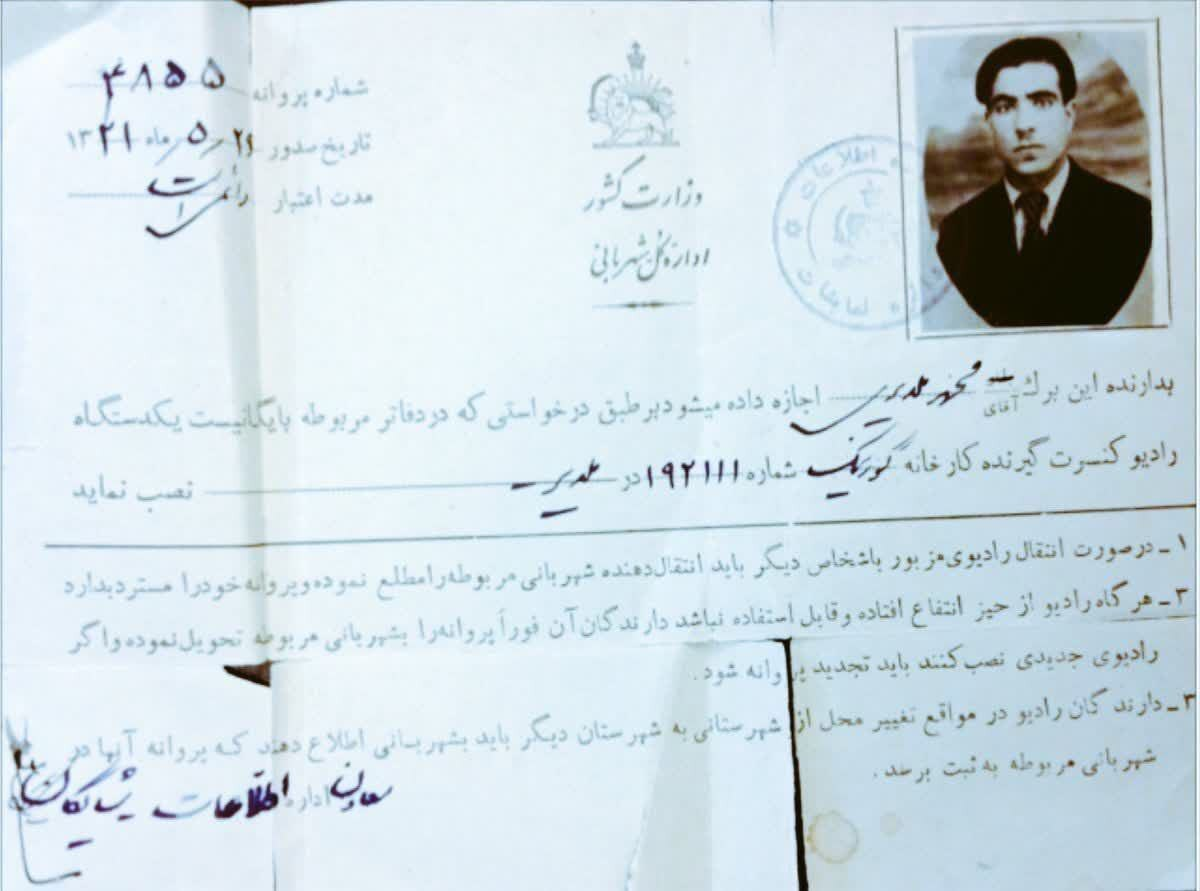 شماره پروانه ۴۸۵۵
تاریخ صدور ۲۱ ماه ۵ ۱۳۲۱
مدت اعتبار دائمی است
وزارت کشور
اداره کل شهربانی
اطلاعات
بدارنده این برك بانو آقای اجازه داده میشود بر طبق درخواستی که در دفاتر مربوطه بایگانیست یکدستگاه
رادیو کنسرت گیرنده کارخانه شماره ۱۹۲۱۱۱ در نصب نماید
۱ـ درصورت انتقال رادیوی مزبور باشخاص دیگر باید انتقال‌دهنده شهربانی مربوطه را مطلع نموده و پروانه خود را مسترد بدارد
۳ـ هر گاه رادیو از حیز انتفاع افتاده و قابل استفاده نباشد دارندگان آن فوراً پروانه را بشهربانی مربوطه تحویل نموده و اگر
رادیوی جدیدی نصب کنند باید تجدید پروانه شود.
۳ـ دارند گان رادیو در مواقع تغییر محل از شهرستانی به شهرستان دیگر باید بشهربانی اطلاع دهند که پروانه آنها در
شهربانی مربوطه به ثبت برسد.
معاون اداره اطلاعات